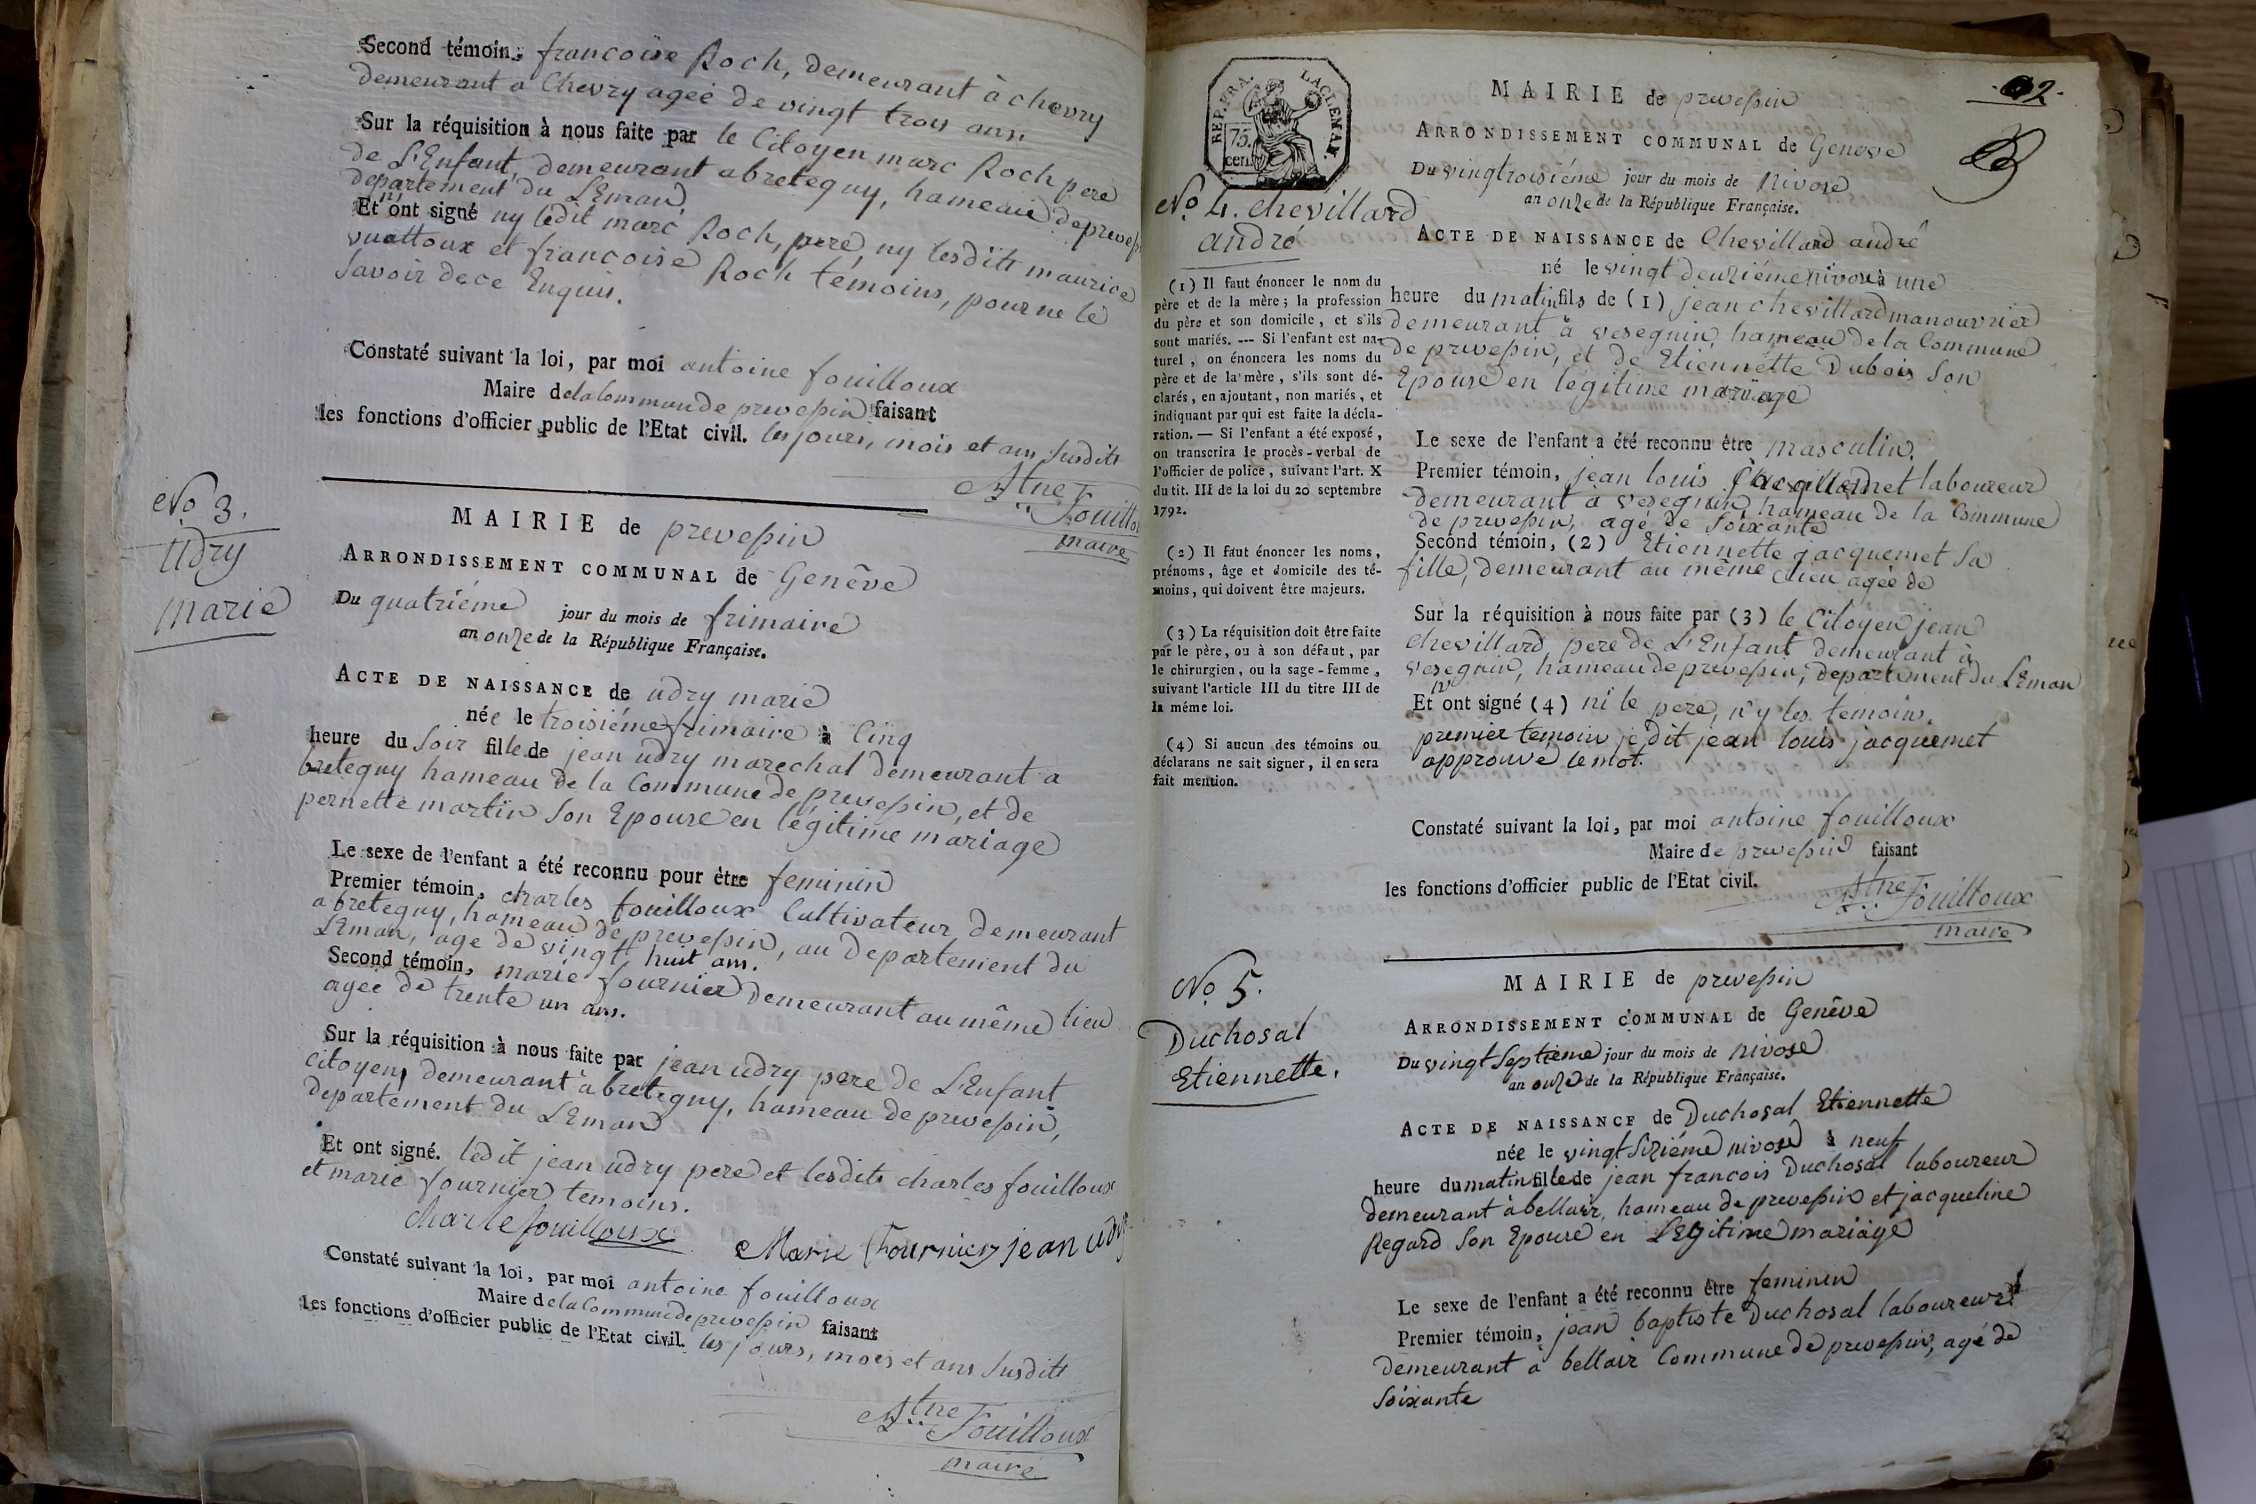 Second témoin, francoise Roch, demeurant à chevry
demeurant a Chevry ageé de vingt trois ans.
Sur la réquisition à nous faite par le Citoyen marc Roch pere
de L'Enfant, demeurant abretegny, hameau de prevesin
departement du Léman
Et n'y ont signé ny ledit marc Roch, pere, ny lesdits maurice
vuattoux et francoise Roch temoins, pour ne le
Savoir de ce Enquis.
Constaté suivant la loi, par moi antoine fouilloux
Maire de la Commune de prevesin faisant
les fonctions d'officier public de l'Etat civil. les jours, mois et ans susdits
Atne Fouilloux
maire
No 3.
udry
marie
MAIRIE de prevesin
ARRONDISSEMENT COMMUNAL de Genêve
Du quatriéme jour du mois de frimaire
an onze de la République Française.
ACTE DE NAISSANCE de udry marie
née le troisiéme frimaire à Cinq
heure du Soir fille de jean udry marechal demeurant a
bretegny hameau de la Commune de prevesin, et de
pernette martin Son Epouse en légitime mariage
Le sexe de l'enfant a été reconnu pour être feminin
Premier témoin, charles fouilloux Cultivateur demeurant
abretegny, hameau de prevesin, au departement du
Léman, age de vingt huit ans.
Second témoin, marie fournier demeurant au même lieu
agée de trente un ans.
Sur la réquisition à nous faite par jean udry pere de L'Enfant
citoyen, demeurant abretegny, hameau de prevesin,
departement du LEman
Et ont signé. ledit jean udry pere et lesdits charles fouilloux
et marie fournier temoins.
charle fouilloux Marie Fournier jean udry
Constaté suivant la loi, par moi antoine fouilloux
Maire de la Commune de prevesin faisant
les fonctions d'officier public de l'Etat civil. les jours, mois et ans Susdits
Atne Fouilloux
maire
REP. FRA. LACLEMAN.
75. cen.
02.
MAIRIE de prevesin
ARRONDISSEMENT COMMUNAL de Geneve
Du vingtroisiéme jour du mois de Nivose
an onze de la République Française.
No 4. chevillard
andré
ACTE DE NAISSANCE de Chevillard andré
né le vingt deuxiéme nivose à une
heure du matin fils de (1) jean chevillard manouvrier
demeurant à vesegnin, hameau de la Commune
de prevesin, et de Etiennette Dubois Son
Epouse en légitime mariage
Le sexe de l'enfant a été reconnu être masculin.
Premier témoin, jean louis jacquemet laboureur
demeurant a vesegnin hameau de la Commune
de prevesin, agé de Soixante
Second témoin, (2) Etiennette jacquemet Sa
fille, demeurant au même Lieu ageé de
Sur la réquisition à nous faite par (3) le Citoyen jean
chevillard pere de L'Enfant demeurant à
vesegnin, hameau de prevesin, departement du LEman
Et n'y ont signé (4) ni le pere, n'y les temoins.
premier temoin je dit jean louis jacquemet
approuvé le mot.
Constaté suivant la loi, par moi antoine fouilloux
Maire de prevesin faisant
les fonctions d'officier public de l'Etat civil.
Atne Fouilloux
maire
(1) Il faut énoncer le nom du
père et de la mère ; la profession
du père et son domicile, et s'ils
sont mariés. --- Si l'enfant est na-
turel, on énoncera les noms du
père et de la mère, s'ils sont dé-
clarés, en ajoutant, non mariés, et
indiquant par qui est faite la décla-
ration. — Si l'enfant a été exposé,
on transcrira le procès-verbal de
l'officier de police, suivant l'art. X
du tit. III de la loi du 20 septembre
1792.
(2) Il faut énoncer les noms,
prénoms, âge et domicile des té-
moins, qui doivent être majeurs.
(3) La réquisition doit être faite
par le père, ou à son défaut, par
le chirurgien, ou la sage-femme,
suivant l'article III du titre III de
la méme loi.
(4) Si aucun des témoins ou
déclarans ne sait signer, il en sera
fait mention.
No 5.
Duchosal
Etiennette.
MAIRIE de prevesin
ARRONDISSEMENT COMMUNAL de Genêve
Du vingt Septieme jour du mois de nivose
an onze de la République Française.
ACTE DE NAISSANCE de Duchosal Etiennette
née le vingt Siziéme nivose à neuf
heure du matin fille de jean francois Duchosal laboureur
demeurant à bellair, hameau de prevesin et jacqueline
Regard Son Epouse en LEgitime mariage
Le sexe de l'enfant a été reconnu être feminin
Premier témoin, jean baptiste Duchosal laboureur
demeurant à bellair Commune de prevesin, agé de
Soixante